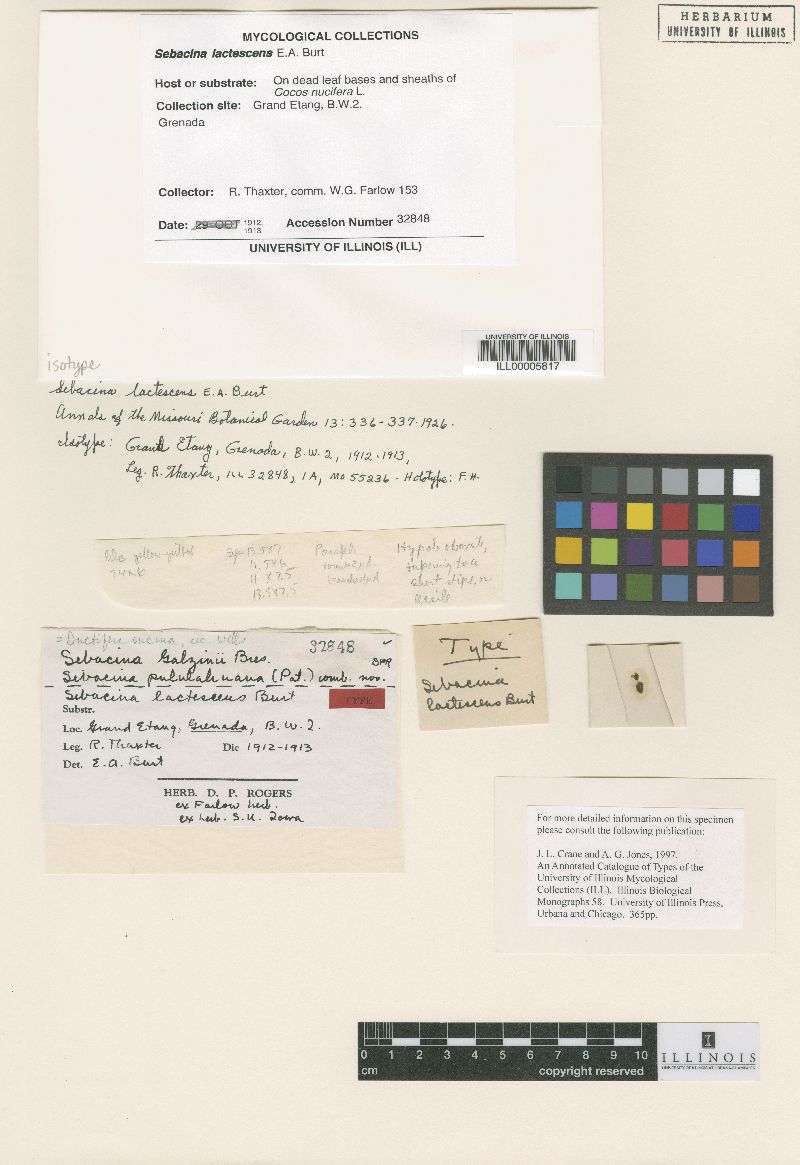 HERBARIUM
UNIVERSITY OF ILLINOIS
MYCOLOGICAL COLLECTIONS
Sebacina lactescens E.A. Burt
Host or substrate: On dead leaf bases and sheaths of
Cocos nucifera L.
Collection site: Grand Etang, B.W.2.
Grenada
Collector: R. Thaxter, comm. W.G. Farlow 153
Date: 29 OCT 1912,
1913
Accession Number 32848
UNIVERSITY OF ILLINOIS (ILL)
UNIVERSITY OF ILLINOIS
ILL00005817
isotype
Sebacina lactescens E.A. Burt
Annals of the Missouri Botanical Garden 13: 336-337. 1926.
Isotype: Grand Etang, Grenada, B.W. 2, 1912-1913,
Leg. R. Thaxter, ILL 32848, IA, MO 55236. Holotype: F.H.
yellow
Hypob. obovate,
tapering to a
short stipe, or
= Ductifera sucina,
32848
Sebacina Galzinii Bres.
Sebacina pululahuana (Pat.) comb. nov.
DPR
Sebacina lactescens Burt
TYPE
Substr.
Loc. Grand Etang, Grenada, B.W. 2.
Leg. R. Thaxter Die 1912-1913
Det. E.A. Burt
HERB. D. P. ROGERS
ex Farlow herb.
ex herb. S.U. Iowa
Type
Sebacina
lactescens Burt
For more detailed information on this specimen
please consult the following publication:
J. L. Crane and A. G. Jones, 1997.
An Annotated Catalogue of Types of the
University of Illinois Mycological
Collections (ILL). Illinois Biological
Monographs 58. University of Illinois Press,
Urbana and Chicago. 365pp.
0 1 2 3 4 5 6 7 8 9 10
cm copyright reserved
I
ILLINOIS
UNIVERSITY OF ILLINOIS AT URBANA-CHAMPAIGN